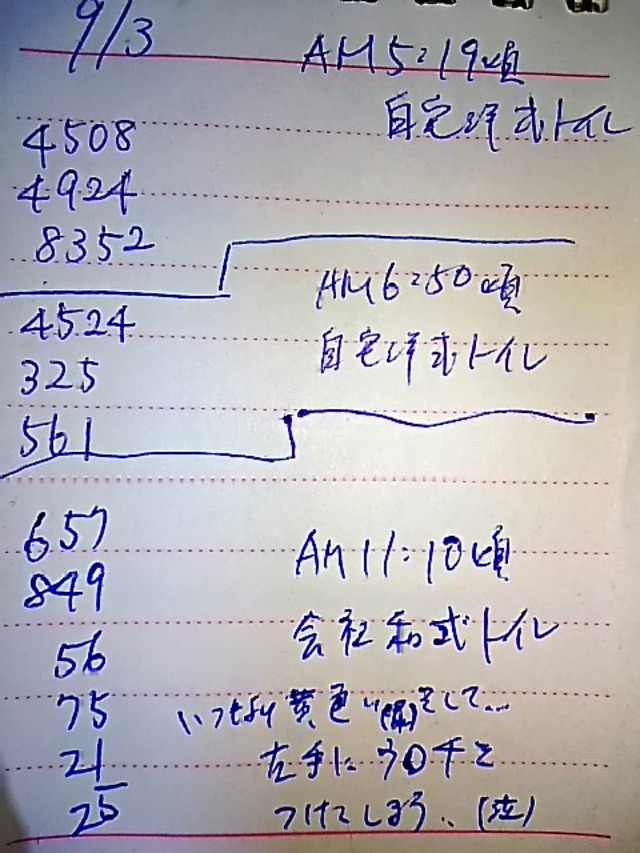 9/3
AM5:19頃
自宅洋式トイレ
4508
4924
8352
AM6:50頃
自宅洋式トイレ
4524
325
561
AM11:10頃
会社和式トイレ
657
849
56
75
21
25
いつもより黄色い
して...
左手に
つけてしまう..(泣)